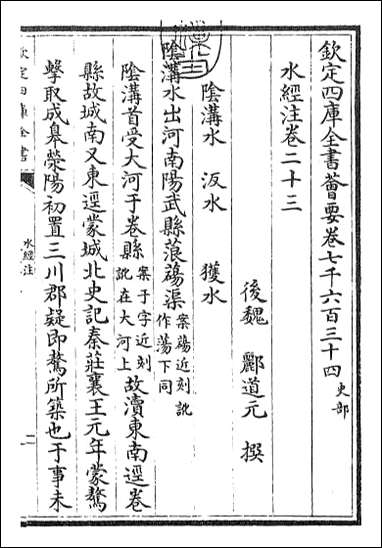 欽定四庫全書薈要卷七千六百三十四 史部
水經注卷二十三
後魏 酈道元 撰
陰溝水 汳水 獲水
陰溝水出河南陽武縣蒗䕞渠 案䕞近刻訛作蕩下同
陰溝首受大河于卷縣 案于字近刻訛在大河上 故瀆東南逕卷
縣故城南又東逕蒙城北史記秦莊襄王元年蒙驁
擊取成皋滎陽初置三川郡疑即驁所築也于事未
欽定四庫全書
水經注